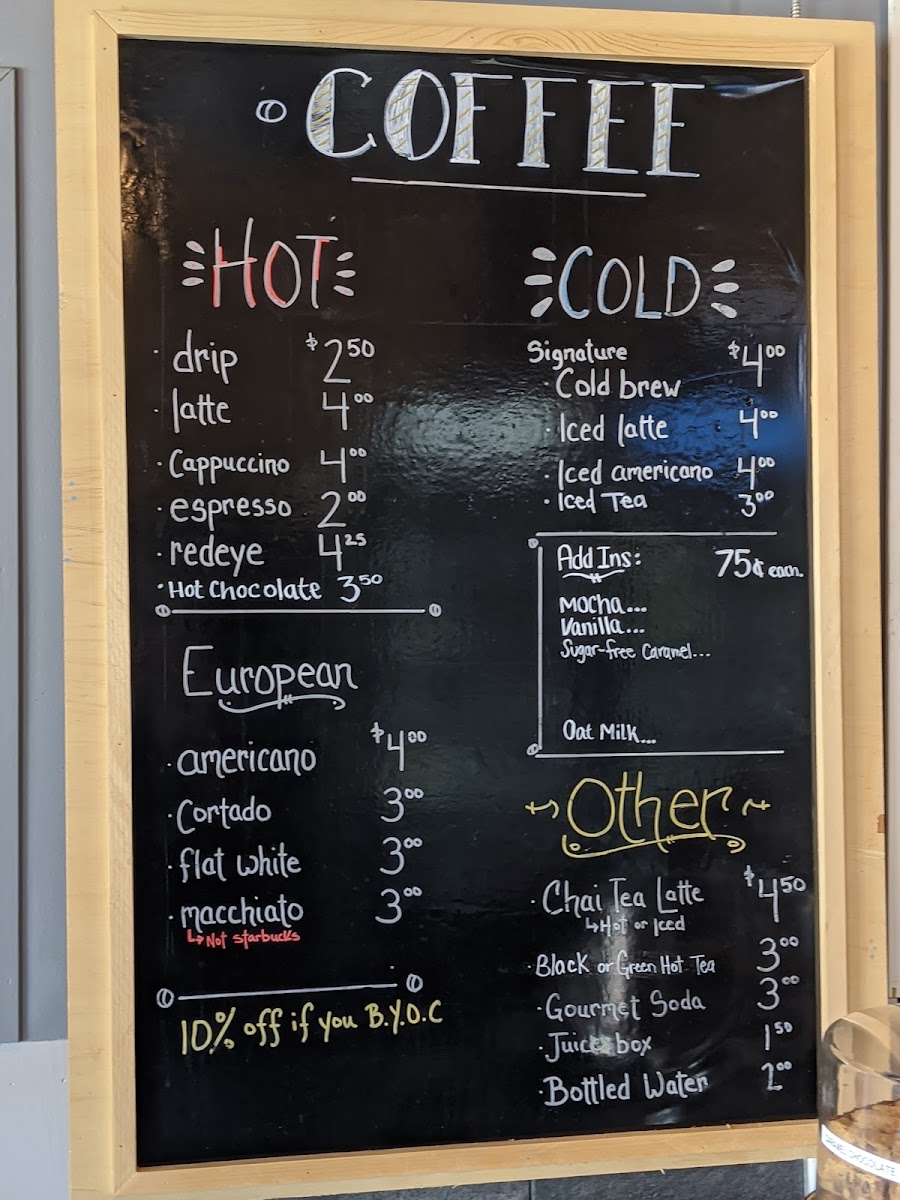 COFFEE
HOT
drip $2.50
latte 4.00
Cappuccino 4.00
espresso 2.00
redeye 4.25
Hot Chocolate 3.50
European
americano $4.00
Cortado 3.00
flat white 3.00
macchiato 3.00
Not starbucks
10% off if you B.Y.O.C
COLD
Signature
Cold brew $4.00
Iced latte 4.00
Iced americano 4.00
Iced Tea 3.00
Add Ins: 75¢ each.
Mocha...
Vanilla...
Sugar-free Caramel...
Oat Milk...
Other
Chai Tea Latte $4.50
Hot or Iced
Black or Green Hot Tea 3.00
Gourmet Soda 3.00
Juice box 1.50
Bottled Water 2.00
CHOCOLATE